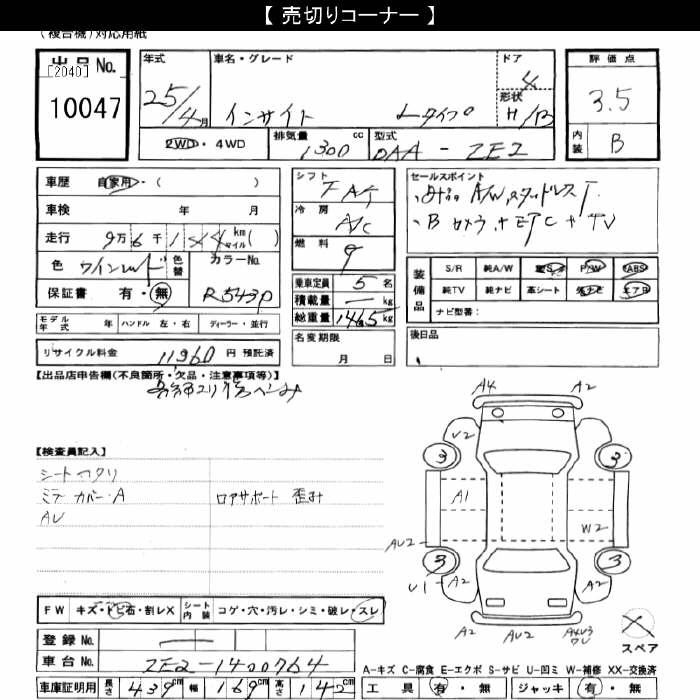 【 売切りコーナー 】
(複合機)対応用紙
出品No.
[2040]
10047
年式
25/4月
車名・グレード
インサイト Lタイプ
ドア
4
形状
H/B
評価点
3.5
内装
B
2WD・4WD
排気量 cc
1300
型式
DAA - ZE2
車歴 自家用・( )
車検 年 月
走行 9万 6千 144 km マイル ( )
色 ワインレッド 色替 カラーNo.
保証書 有・無 R543P
モデル年式 年 ハンドル 左・右 ディーラー・並行
リサイクル料金 11960 円 預託済
シフト
FAT
冷房
A/C
燃料
乗車定員 5 名
積載量 ー kg
総重量 1465 kg
名変期限
月 日
セールスポイント
・B カメラ + ETC + TV
装備品
S/R 純A/W P/W ABS
純TV 純ナビ 革シート エアB
ナビ型番:
後日品
【出品店申告欄(不良箇所・欠品・注意事項等)】
【検査員記入】
シートマクリ
ミラーカバー・A ロアサポート 歪み
AU
FW キズ・トビ石・割レX シート内装 コゲ・穴・汚レ・シミ・破レ・スレ
登録No. ー
車台No. ZE2-1400764
車庫証明用 長さ 439cm 幅 169cm 高さ 142cm
A4 A2
U2
3 3
A1
W2
AU2
3 3
U1 A2 A2
A2 AU2 A4U3
スペア
A-キズ C-腐食 E-エクボ S-サビ U-凹ミ W-補修 XX-交換済
工具 有・無 ジャッキ 有・無